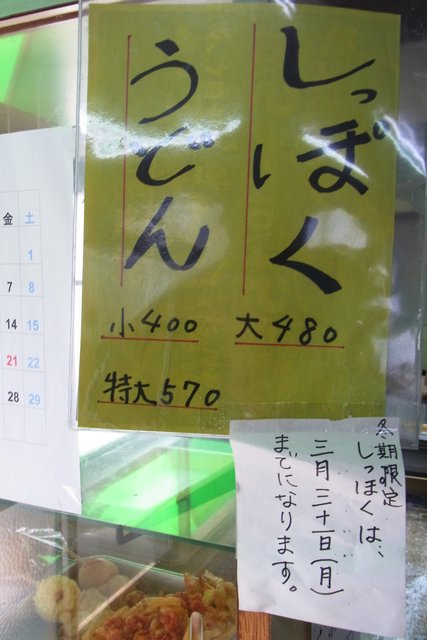 しっぽく
うどん
小400 大480
特大570
冬期限定
しっぽくは、
三月三十一日(月)
までになります。
金 土
1
7 8
14 15
21 22
28 29